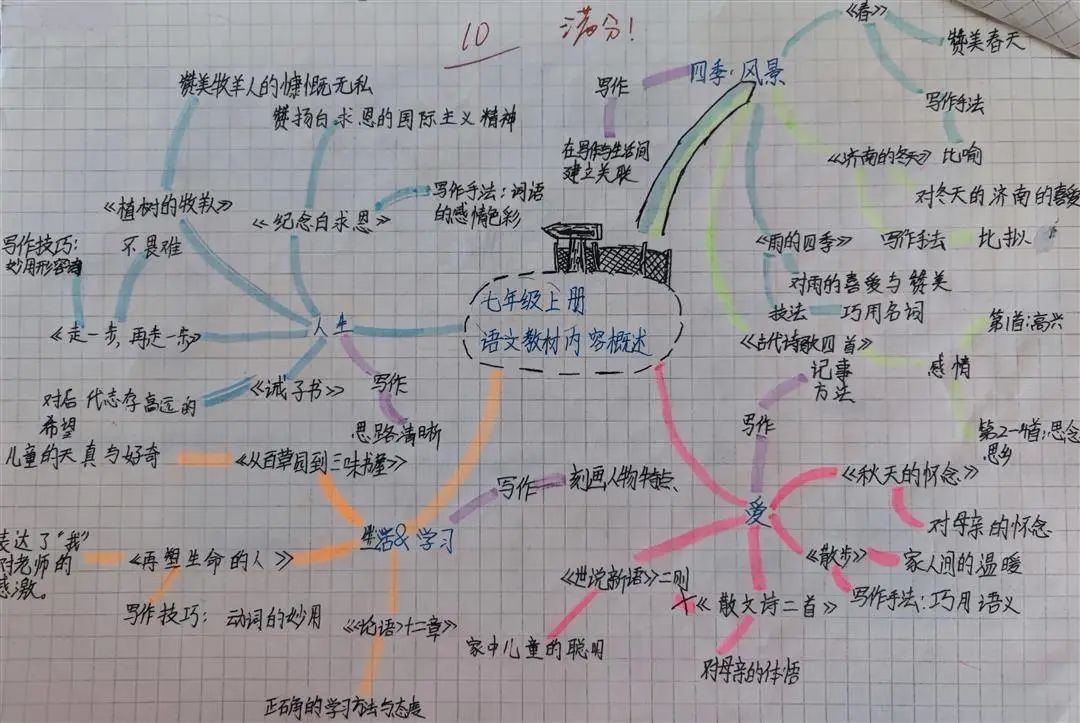 10 满分!
赞美牧羊人的慷慨无私
赞扬白求恩的国际主义精神
《植树的牧羊人》
不畏难
《纪念白求恩》
写作手法:词语
的感情色彩
写作技巧:
妙用形容词
《走一步,再走一步》
人生
《诫子书》
对后代志存高远的
希望
写作
思路清晰
七年级上册
语文教材内容概述
四季·风景
写作
在写作与生活间
建立关联
《春》
赞美春天
写作手法
比喻
《济南的冬天》
对冬天的济南的喜爱
《雨的四季》
写作手法
比拟
对雨的喜爱与赞美
技法
巧用名词
《古代诗歌四首》
感情
第1首:高兴
第2-4首:思念
思乡
儿童的天真与好奇
《从百草园到三味书屋》
生活&学习
写作
刻画人物特点
表达了“我”
对老师的
感激。
《再塑生命的人》
写作技巧: 动词的妙用
《论语》十二章》
正确的学习方法与态度
爱
写作
记事
方法
《秋天的怀念》
对母亲的怀念
《散步》
家人间的温暖
写作手法:巧用语义
《散文诗二首》
对母亲的体悟
《世说新语》二则
家中儿童的聪明